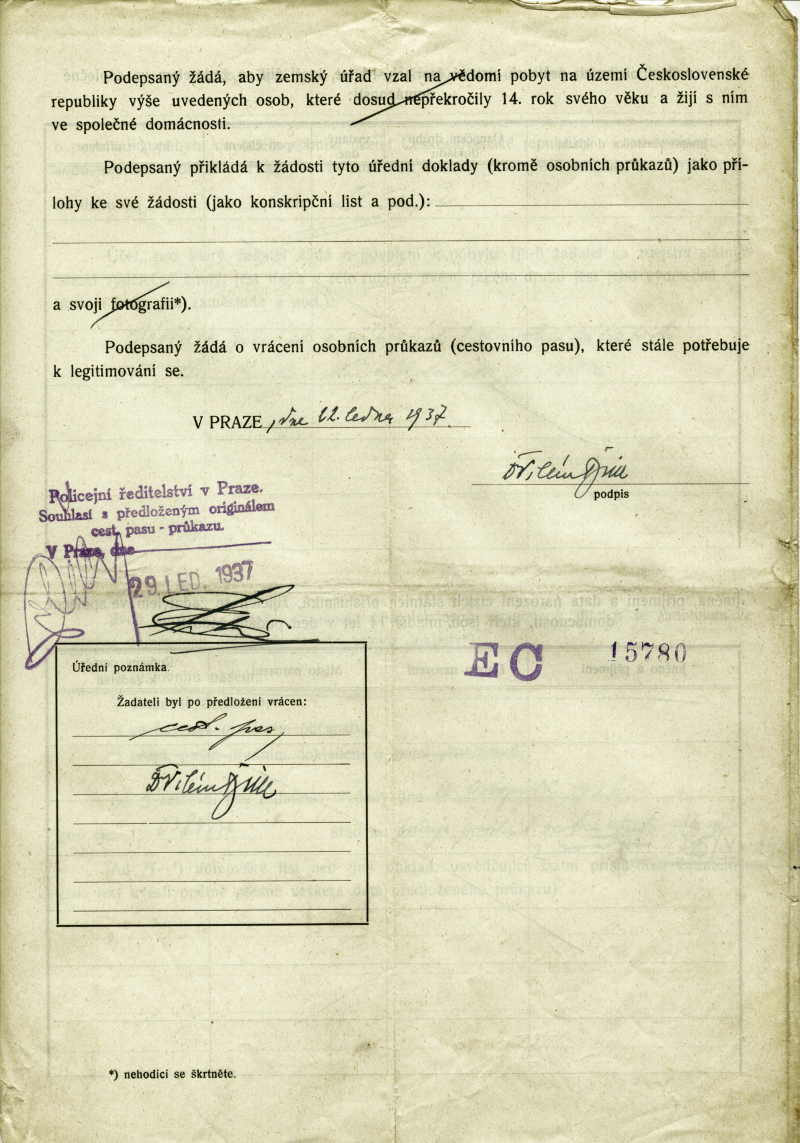 Podepsaný žádá, aby zemský úřad vzal na vědomí pobyt na území Československé
republiky výše uvedených osob, které dosud nepřekročily 14. rok svého věku a žijí s ním
ve společné domácnosti.
Podepsaný přikládá k žádosti tyto úřední doklady (kromě osobních průkazů) jako pří-
lohy ke své žádosti (jako konskripční list a pod.):
a svoji fotografii*).
Podepsaný žádá o vrácení osobních průkazů (cestovního pasu), které stále potřebuje
k legitimování se.
V PRAZE, dne 22. ledna 1937.
Dr Vilém
podpis
Policejní ředitelství v Praze.
Souhlasí s předloženým originálem
cest. pasu - průkazu.
V Praze, dne
29. LED. 1937
EC 15780
Úřední poznámka.
Žadateli byl po předložení vrácen:
cest. pas
Dr Vilém
*) nehodící se škrtněte.